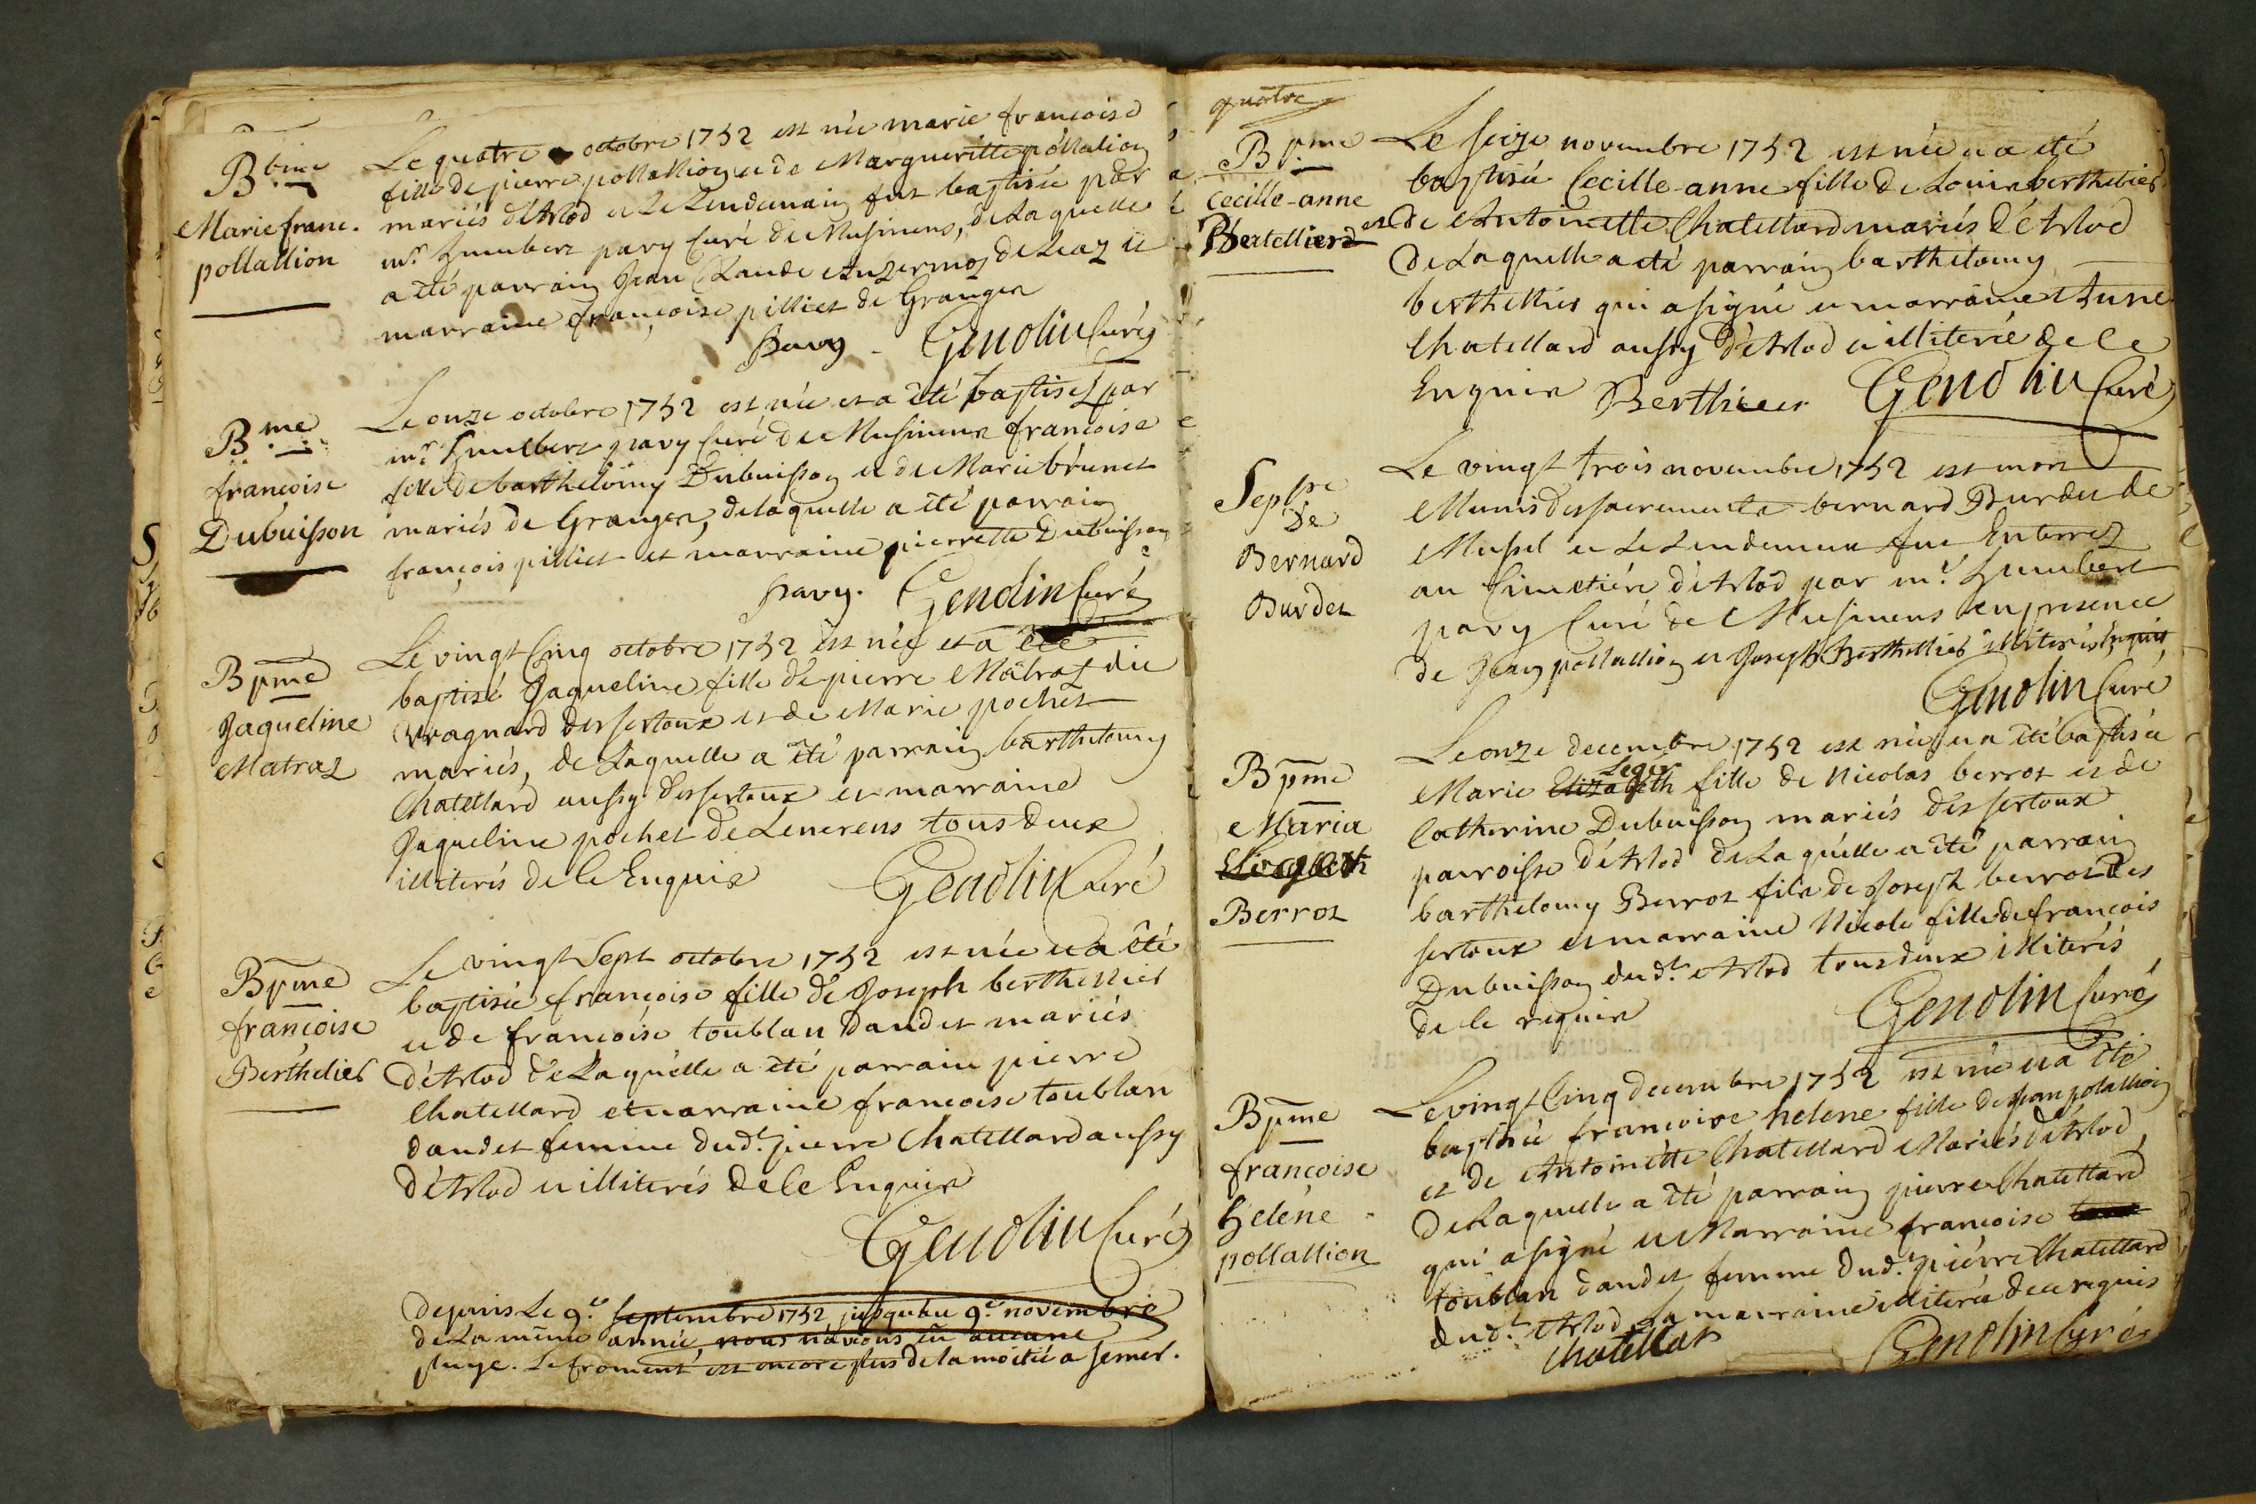 Btme
Marie franc.
pollallion
Le quatre octobre 1752 est née marie francoise
fille de pierre pollallion et de Margueritte pollalion
mariés d'Arlod et le Lendemain fut baptisée par
mr. humbert pavy Curé de Musinens, de Laquelle
a été parrain Jean Claude de Leaz et
marraine françoise pilliet de Granges
pavy. Genolin Curé
Bme
françoise
Dubuisson
Le onze octobre 1752 est née et a été baptisez par
mr. humbert pavy Curé de Musinens françoise
fille de barthelémy Dubuisson et de Marie brunet
mariés de Granges, de laquelle a été parrain
françois pilliet et marraine pierrette Dubuisson
pavy. Genolin Curé
Bpme
Jaqueline
Matraz
Le vingt Cinq octobre 1752 est née et a été
baptisé Jaqueline fille de pierre Matraz dit
des sertoux et de Marie pochet
mariés, de Laquelle a été parrain barthelemy
Chatellard aussy des sertoux et marraine
Jaqueline pochet de Lenerens tous deux
illiterés de Ce Enquis
Genolin Curé
Bpme
françoise
Berthelier
Le vingt Sept octobre 1752 est née et a été
baptisée françoise fille de Joseph berthellier
et de françoise toublan dandet mariés
d'Arlod de Laquelle a été parrain pierre
Chatellard et marraine francoise toublan
dandet femme dud.t pierre Chatellard aussy
d'Arlod et illiterés de Ce Enquis
Genolin Curé
Depuis Le 9.e septembre 1752 jusqu'au 9.e novembre
de La même année, nous n'avons eu aucune
pluye. Le froment est encore plus de la moitié a semer.
quatre
Bpme
Cecille-anne
Bertellierd
Le seize novembre 1752 est née et a été
baptisée Cecille-anne fille de Louis berthelier
et de Antoinette Chatellard mariés d'Arlod
de Laquelle a été parrain barthelemy
berthellier qui a signé et marraine Anne
Chatellard aussy d'Arlod et illiterée de Ce
Enquis Berthieer Genolin Curé
Sepre
de
Bernard
Burdet
Le vingt trois novembre 1752 est mort
Munis des sacrements bernard Burdet de
Mussel et Le Lendemain fut Enterrez
au Cimetière d'Arlod par mr. humbert
pavy Curé de Musinens en presence
de Jean pollallion et Joseph Berthellier illiterés Enquis
Genolin Curé
Bpme
Maria
Elizabeth
Berrot
Le onze decembre 1752 est née et a été baptisée
Leger
Marie Elizabeth fille de Nicolas berrot et de
Catherine Dubuisson mariés des sertoux
parroisse d'Arlod de Laquelle a été parrain
barthelemy Berrot fils de Joseph berrot des
sertoux et marraine Nicole fille de francois
Dubuisson dud.t Arlod tous deux illiterés
de Ce requis
Genolin Curé
Bpme
françoise
helene
pollallion
Le vingt Cinq decembre 1752 est née et a été
baptisée francoise helene fille de Jean polallion
et de Antoinette Chatellard Mariés d'Arlod,
de Laquelle a été parrain pierre Chatellard
qui a signé et Marraine francoise
toublan dandet femme dud.t pierre Chatellard
dud.t Arlod La marraine illiterée de ce requis
Chatellar Genolin Curé